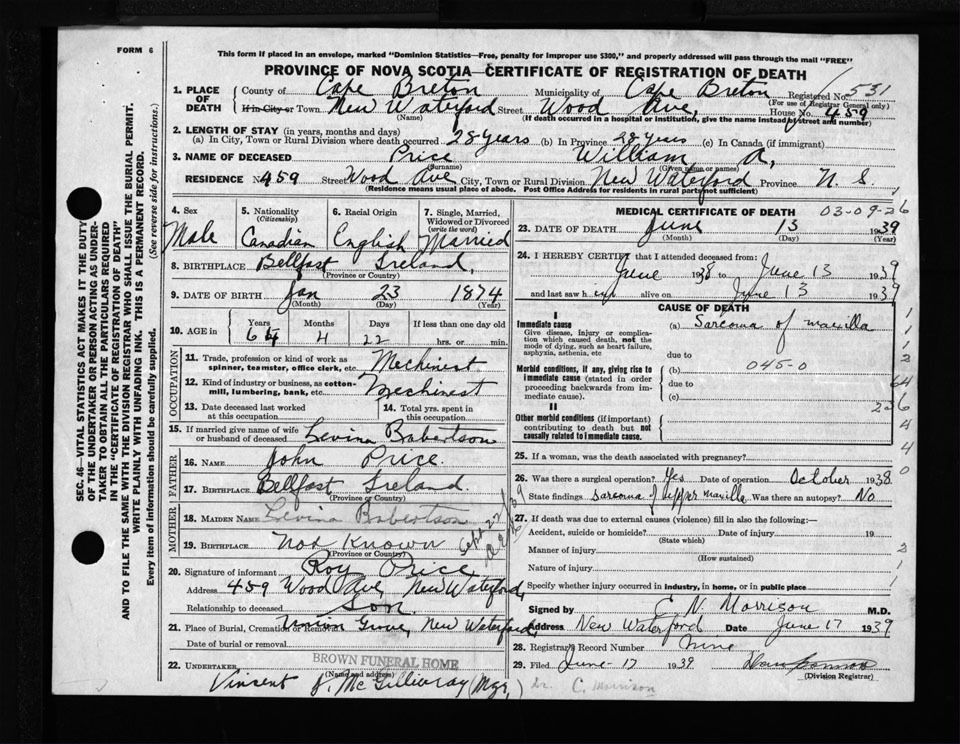 FORM 6
This form if placed in an envelope, marked "Dominion Statistics—Free, penalty for improper use $300," and properly addressed will pass through the mail "FREE"
PROVINCE OF NOVA SCOTIA—CERTIFICATE OF REGISTRATION OF DEATH
1. PLACE OF DEATH
County of Cape Breton Municipality of Cape Breton Registered No. 531
(For use of Registrar General only)
If in City or Town New Waterford Street Wood Ave, House No 459
(Name) (If death occurred in a hospital or institution, give the name instead of street and number)
2. LENGTH OF STAY (in years, months and days)
(a) In City, Town or Rural Division where death occurred 28 years (b) In Province 28 years (c) In Canada (if immigrant)
3. NAME OF DECEASED Price William A,
(Surname) (Given name or names)
RESIDENCE No 459 Street Wood Ave City, Town or Rural Division New Waterford Province N. S.
(Residence means usual place of abode. Post Office Address for residents in rural parts not sufficient)
4. Sex
Male
5. Nationality (Citizenship)
Canadian
6. Racial Origin
English
7. Single, Married, Widowed or Divorced (write the word)
Married
8. BIRTHPLACE Bellfast Ireland,
(Province or Country)
9. DATE OF BIRTH Jan 23 1874
(Month) (Day) (Year)
10. AGE in
Years Months Days If less than one day old
64 4 22 hrs. or min.
OCCUPATION
11. Trade, profession or kind of work as spinner, teamster, office clerk, etc. Mechinest
12. Kind of industry or business, as cotton-mill, lumbering, bank, etc. Mechinest
13. Date deceased last worked at this occupation
14. Total yrs. spent in this occupation
15. If married give name of wife or husband of deceased Levina Babertson
FATHER
16. NAME John Price.
17. BIRTHPLACE Bellfast Ireland.
(Province or Country)
MOTHER
18. MAIDEN NAME Levina Babertson
19. BIRTHPLACE Not Known
(Province or Country)
20. Signature of informant Roy Price
Address 459 Wood Ave, New Waterford,
Relationship to deceased Son.
21. Place of Burial, Cremation or Removal Union Grove, New Waterford,
Date of burial or removal
BROWN FUNERAL HOME
22. UNDERTAKER
(Name and address)
Vincent J. McGillivray (Mgr.)
MEDICAL CERTIFICATE OF DEATH 03-09-26
23. DATE OF DEATH June 13 1939
(Month) (Day) (Year)
24. I HEREBY CERTIFY that I attended deceased from:
June 1938 to June 13 1939
and last saw him alive on June 13 1939
CAUSE OF DEATH
I
Immediate cause
Give disease, injury or complication which caused death, not the mode of dying, such as heart failure, asphyxia, asthenia, etc
(a) Sarcoma of maxilla
due to
Morbid conditions, if any, giving rise to immediate cause (stated in order proceeding backwards from immediate cause).
(b) 045-0
due to
(c)
II
Other morbid conditions (if important) contributing to death but not causally related to immediate cause.
25. If a woman, was the death associated with pregnancy?
26. Was there a surgical operation? Yes Date of operation October 1938
State findings sarcoma of upper maxilla Was there an autopsy? No
27. If death was due to external causes (violence) fill in also the following:—
Accident, suicide or homicide? Date of injury 19
(State which)
Manner of injury
(How sustained)
Nature of injury
Specify whether injury occurred in industry, in home, or in public place
Signed by C N. Morrison M.D.
Address New Waterford Date June 17 1939
28. Registrar's Record Number nine
29. Filed June-17 1939
(Division Registrar)
Dr. C. Morrison
SEC. 46—VITAL STATISTICS ACT MAKES IT THE DUTY OF THE UNDERTAKER OR PERSON ACTING AS UNDERTAKER TO OBTAIN ALL THE PARTICULARS REQUIRED IN THE "CERTIFICATE OF REGISTRATION OF DEATH" AND TO FILE THE SAME WITH THE DIVISION REGISTRAR WHO SHALL ISSUE THE BURIAL PERMIT.
WRITE PLAINLY WITH UNFADING INK. THIS IS A PERMANENT RECORD.
Every item of information should be carefully supplied. (See reverse side for instructions.)